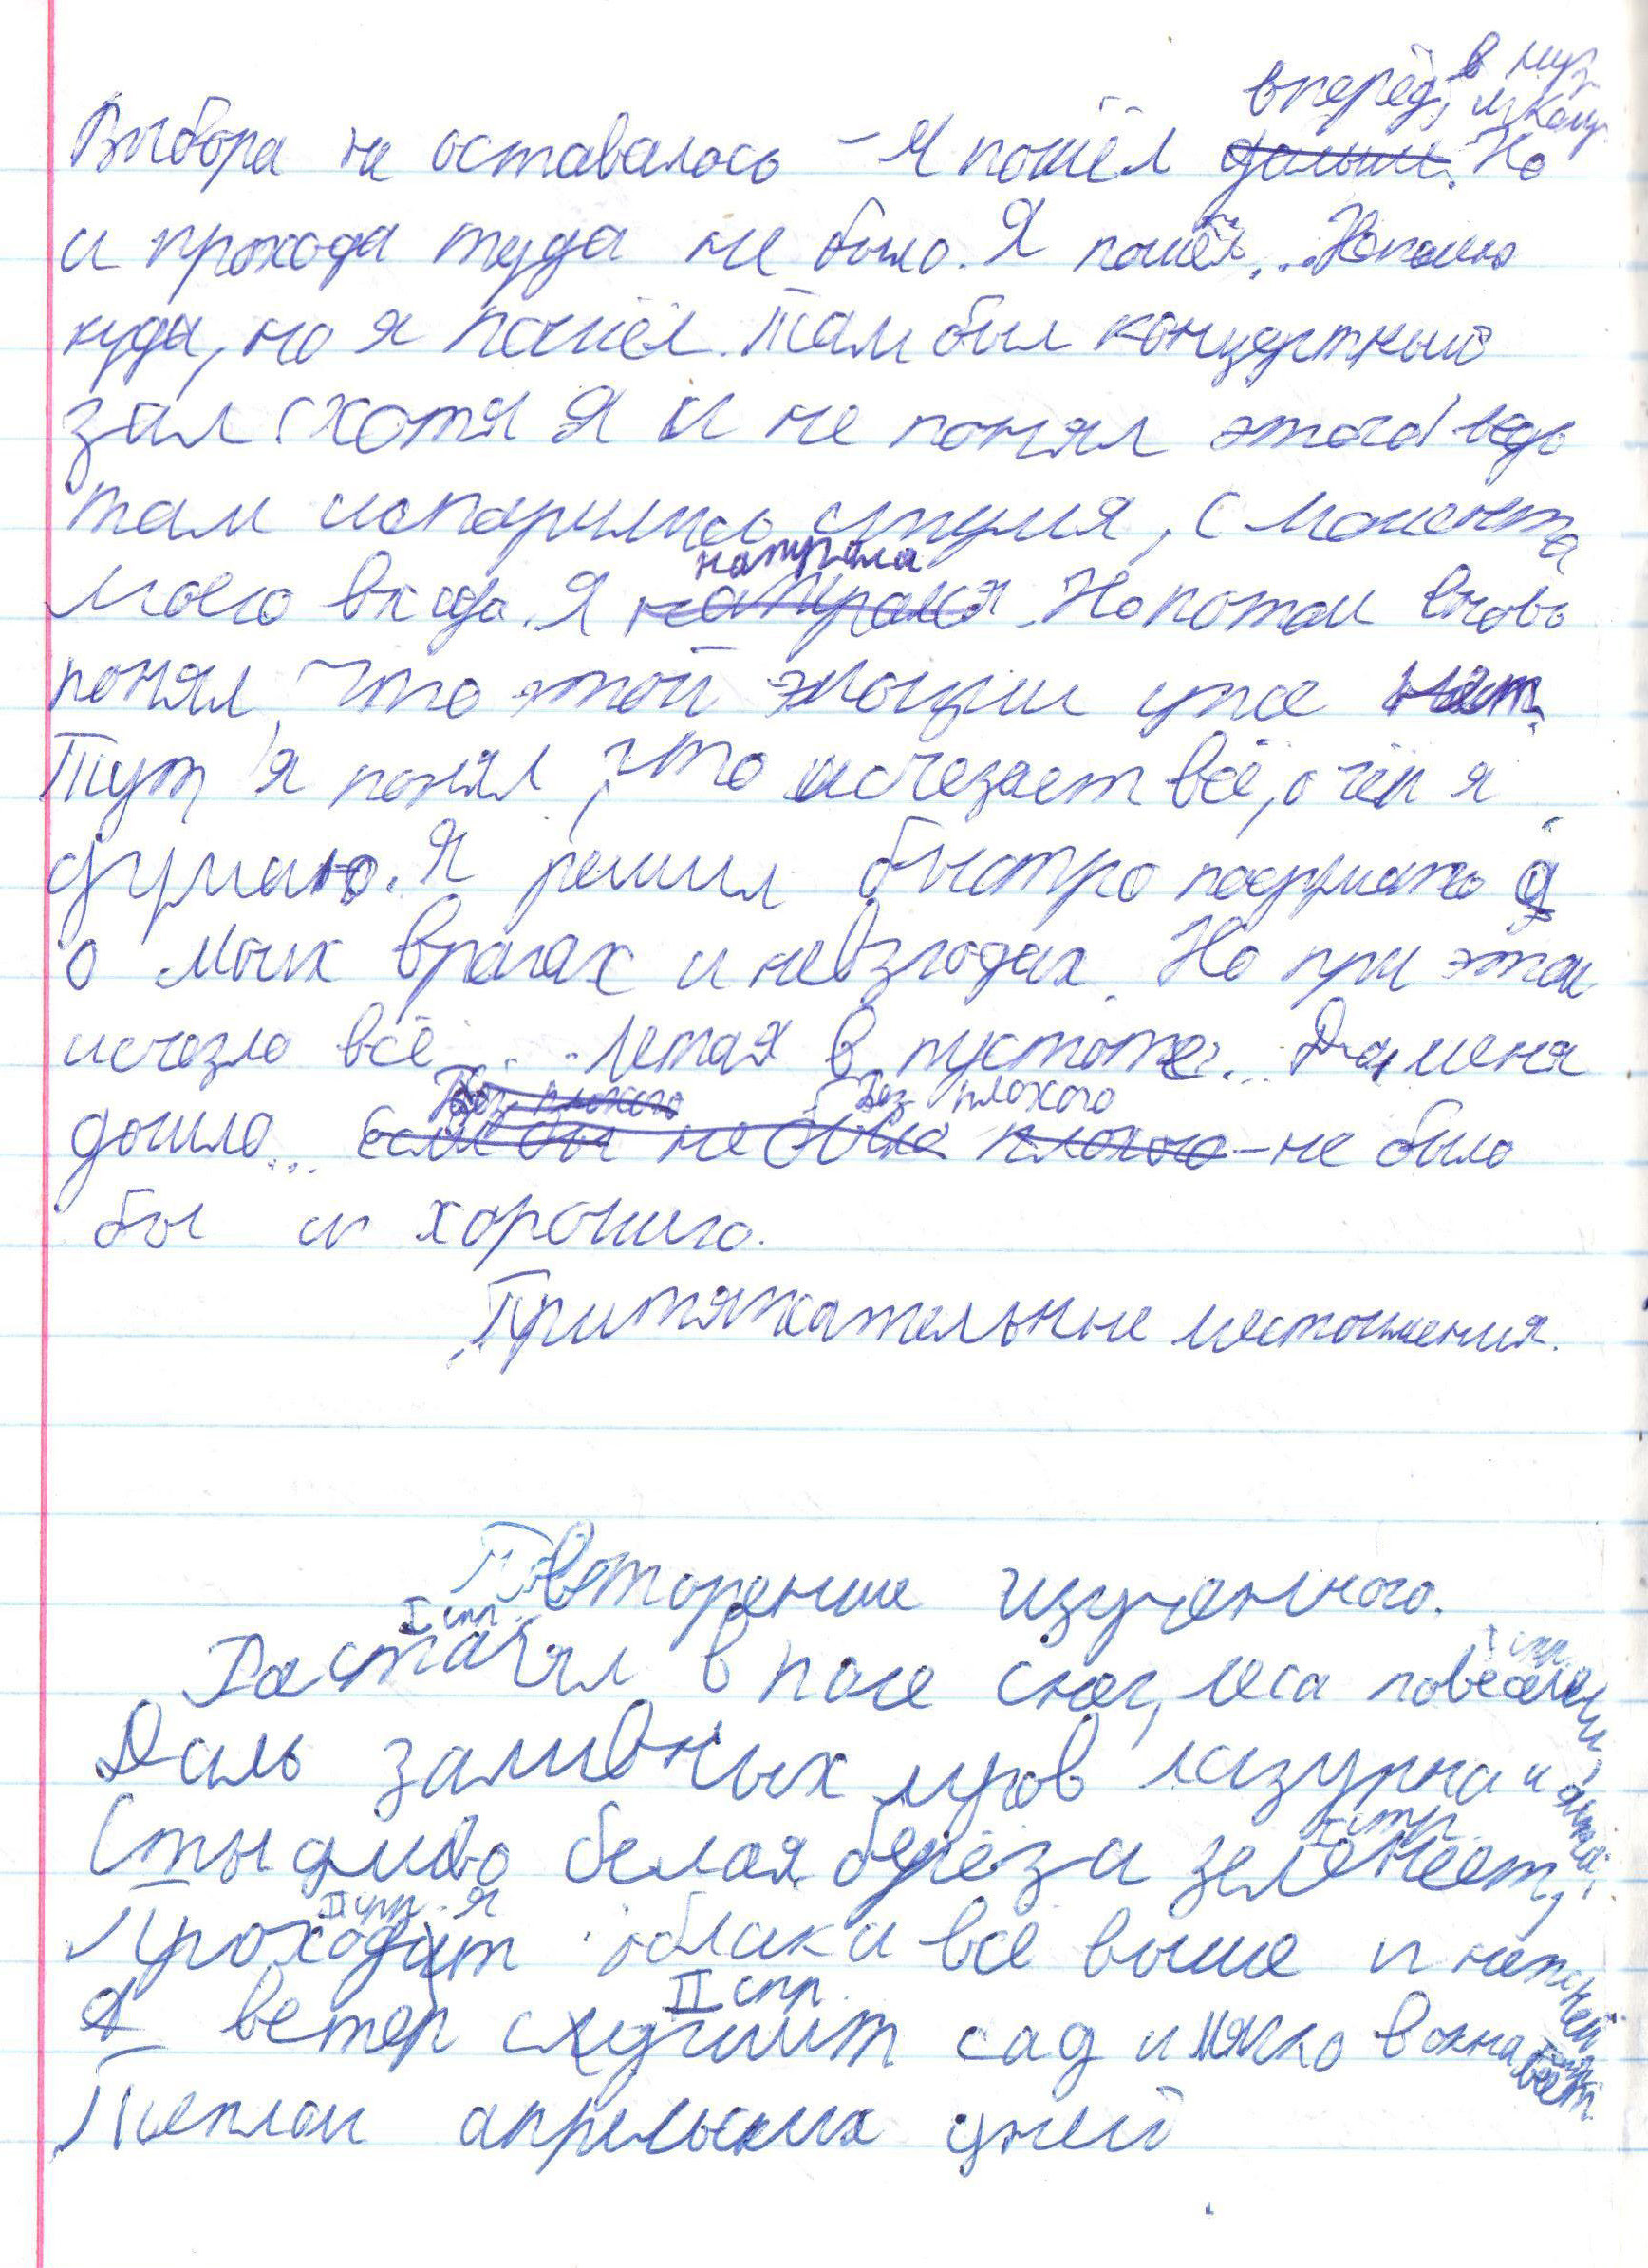 вперёд, в мир
музыку.
Выбора не оставалось – Я пошёл дальше. Но
и прохода туда не было. Я пошёл... Не помню
куда, но я пошёл. Там был концертный
зал (хотя Я и не понял этого) ведь
там испарились стулья, с момента
моего входа. Я
Но потом вновь
понял, что этой эмоции уже нет.
Тут я понял, что исчезает всё, о чём я
думаю. Я решил быстро подумать
о моих врагах и невзгодах. Но при этом
исчезло всё... Летая в пустоте... До меня
Без плохого без плохого
дошло... Если бы не было плохого – не было
бы и хорошего.
Притяжательные местоимения.
Повторение изученного.
I спр. I спр.
Растаял в поле снег, леса повеселели,
Даль заливных лугов лазурна и ясна,
I спр.
Стыдливо белая берёза зеленеет,
II спр. я
Проходит облака всё выше и нежней
II спр.
А ветер сушит сад и мягко в окна веет
Теплом апрельских дней